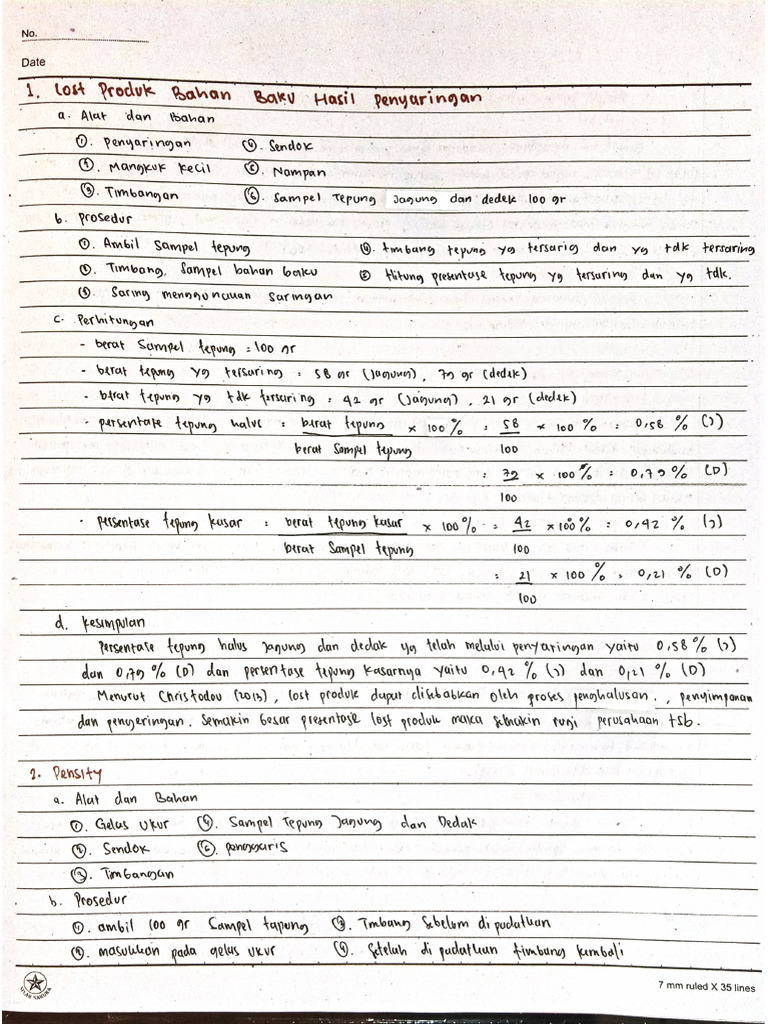 No.
Date
1. Lost Produk Bahan Baku Hasil Penyaringan
a. Alat dan Bahan
①. Penyaringan ④. Sendok
②. Mangkuk kecil ⑤. Nampan
③. Timbangan ⑥. Sampel Tepung Jagung dan dedek 100 gr
b. Prosedur
①. Ambil sampel tepung ④. timbang tepung yg tersarig dan yg tdk tersaring
②. Timbang, Sampel bahan baku ⑤ Hitung presentase tepung yg tersaring dan yg tdk.
③. Saring menggunakan Saringan
c. Perhitungan
- berat Sampel tepung = 100 gr
- berat tepung yg tersaring = 58 gr (Jagung), 79 gr (dedek)
- berat tepung yg tdk tersaring = 42 gr (Jagung), 21 gr (dedek)
- persentate tepung halus = berat tepung × 100 % = 58 × 100 % = 0,58 % (J)
berat Sampel tepung 100
= 79 × 100 % = 0,79 % (D)
100
- persentase tepung kasar = berat tepung kasar × 100 % = 42 × 100 % = 0,42 % (J)
berat Sampel tepung 100
= 21 × 100 % = 0,21 % (D)
100
d. Kesimpulan
Persentase tepung halus Jagung dan dedak yg telah melalui penyaringan yaitu 0,58 % (J)
dan 0,79 % (D) dan persentase tepung kasarnya yaitu 0,42 % (J) dan 0,21 % (D)
Menurut Christodou (2013), lost produk dapat disebabkan oleh proses penghalusan, , penyimpanan
dan pengeringan. Semakin besar presentase lost produk maka Semakin rugi perusahaan tsb.
2. Density
a. Alat dan Bahan
①. Gelas Ukur ④. Sampel Tepung Jagung dan Dedak
②. Sendok ⑤. penggaris
③. Timbangan
b. Prosedur
①. ambil 100 gr Sampel tapung ③. Tmbang Sebelum di padatkan
②. masukkan pada gelas ukur ④. Setelah di padatkan timbang kembali
7 mm ruled X 35 lines